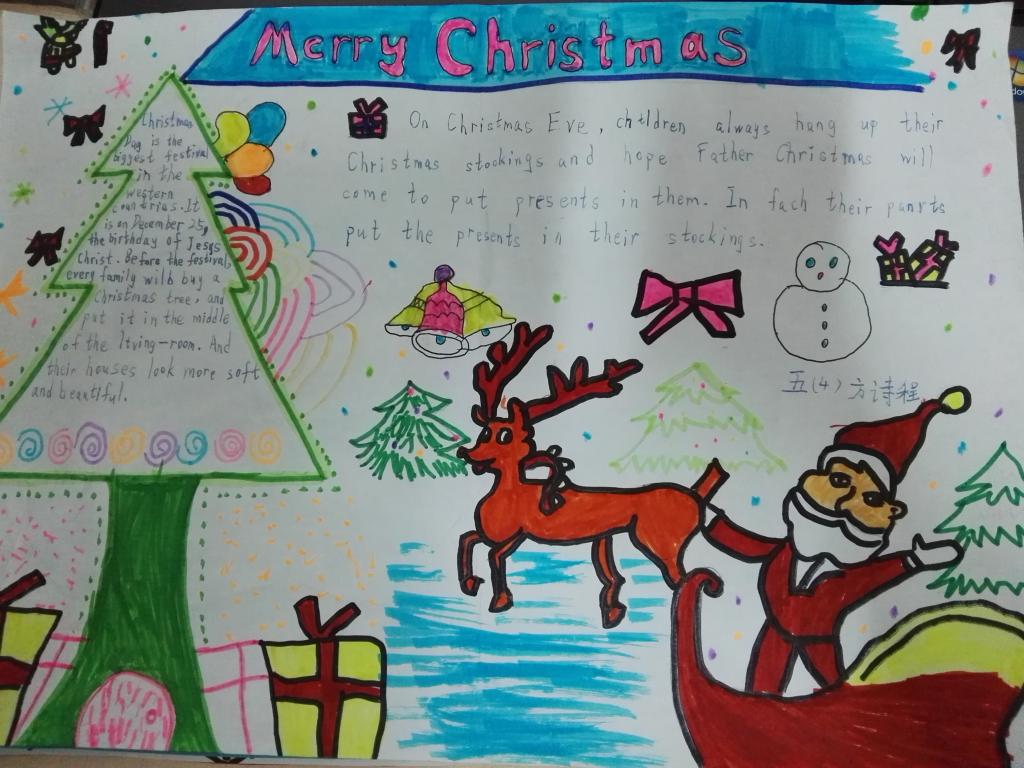 Merry Christmas
Christmas
Day is the
biggest festival
in the
western
countrias. It
is on December 25,
the birthday of Jesus
Christ. Before the festival,
every family wilb buy a
Christmas tree, and
put it in the middle
of the living-room. And
their houses look more soft
and beautiful.
On Christmas Eve, children always hang up their
Christmas stockings and hope Father Christmas will
come to put presents in them. In fach their panrts
put the presents in their stockings.
五(4) 方诗程